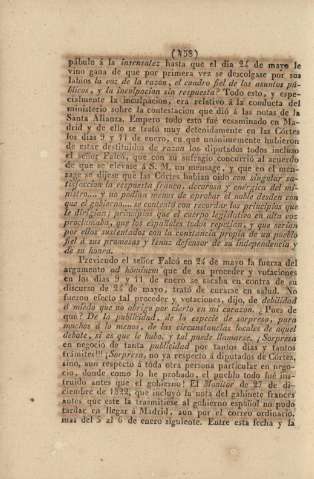 (458)
pábulo á la insensatez hasta que el dia 24 de mayo le
vino gana de que por primera vez se descolgase por sus
labios la voz de la razon, el cuadro fiel de los asuntos pú-
blicos, y la inculpacion sin respuesta? Todo esto, y espe-
cialmente la inculpacion, era relativo á la conducta del
ministerio sobre la contestacion que dió á las notas de la
Santa Alianza. Empero todo esto fué ecsaminado en Ma-
drid y de ello se trató muy detenidamente en las Córtes
los dias 9 y 11 de enero, en que unánimemente hubieron
de estar destituidos de razon los diputados todos incluso
el señor Falcó, que con su sufragio concurrió al acuerdo
de que se elevase á S. M. un mensage, y que en el men-
sage se dijese que las Córtes habian oido con singular sa-
tisfaccion la respuesta franca, decorosa y enérgica del mi-
nistro.... y no podian menos de aprobar el noble desden con
que el gobierno.... se contentó con recordar los principios que
le dirigian; principios que el cuerpo legislativo en alta voz
proclamaba, que los españoles todos repetian, y que serian
por ellos sustentados con la constancia propia de un pueblo
fiel á sus promesas y tenaz defensor de su independencia y
de su honra.
Previendo el señor Falcó en 24 de mayo la fuerza del
argumento ad hominem que de su proceder y votaciones
en los dias 9 y 11 de enero se sacaba en contra de su
discurso de 24 de mayo, trató de curarse en salud. No
fueron efecto tal proceder y votaciones, dijo, de debilidad
ó miedo que no abriga por cierto en mi corazon. ¿Pues de
que? De la publicidad, de la especie de sorpresa, para
muchos á lo menos, de las circunstancias locales de aquel
debate, si es que le hubo, y tal puede llamarse. ¿Sorpresa
en negocio de tanta publicidad por tantos dias y tantos
trámites!!! ¡Sorpresa, no ya respecto á diputados de Córtes,
sino, aun respecto á toda otra persona particular en nego-
cio, donde como lo he probado, el pueblo todo fué ins-
truido antes que el gobierno! El Monitor de 27 de di-
ciembre de 1822, que incluyó la nota del gabinete frances
antes que este la trasmitiese al gobierno español no pudo
tardar en llegar á Madrid, aun por el correo ordinario,
mas del 5 al 6 de enero siguiente. Entre esta fecha y la